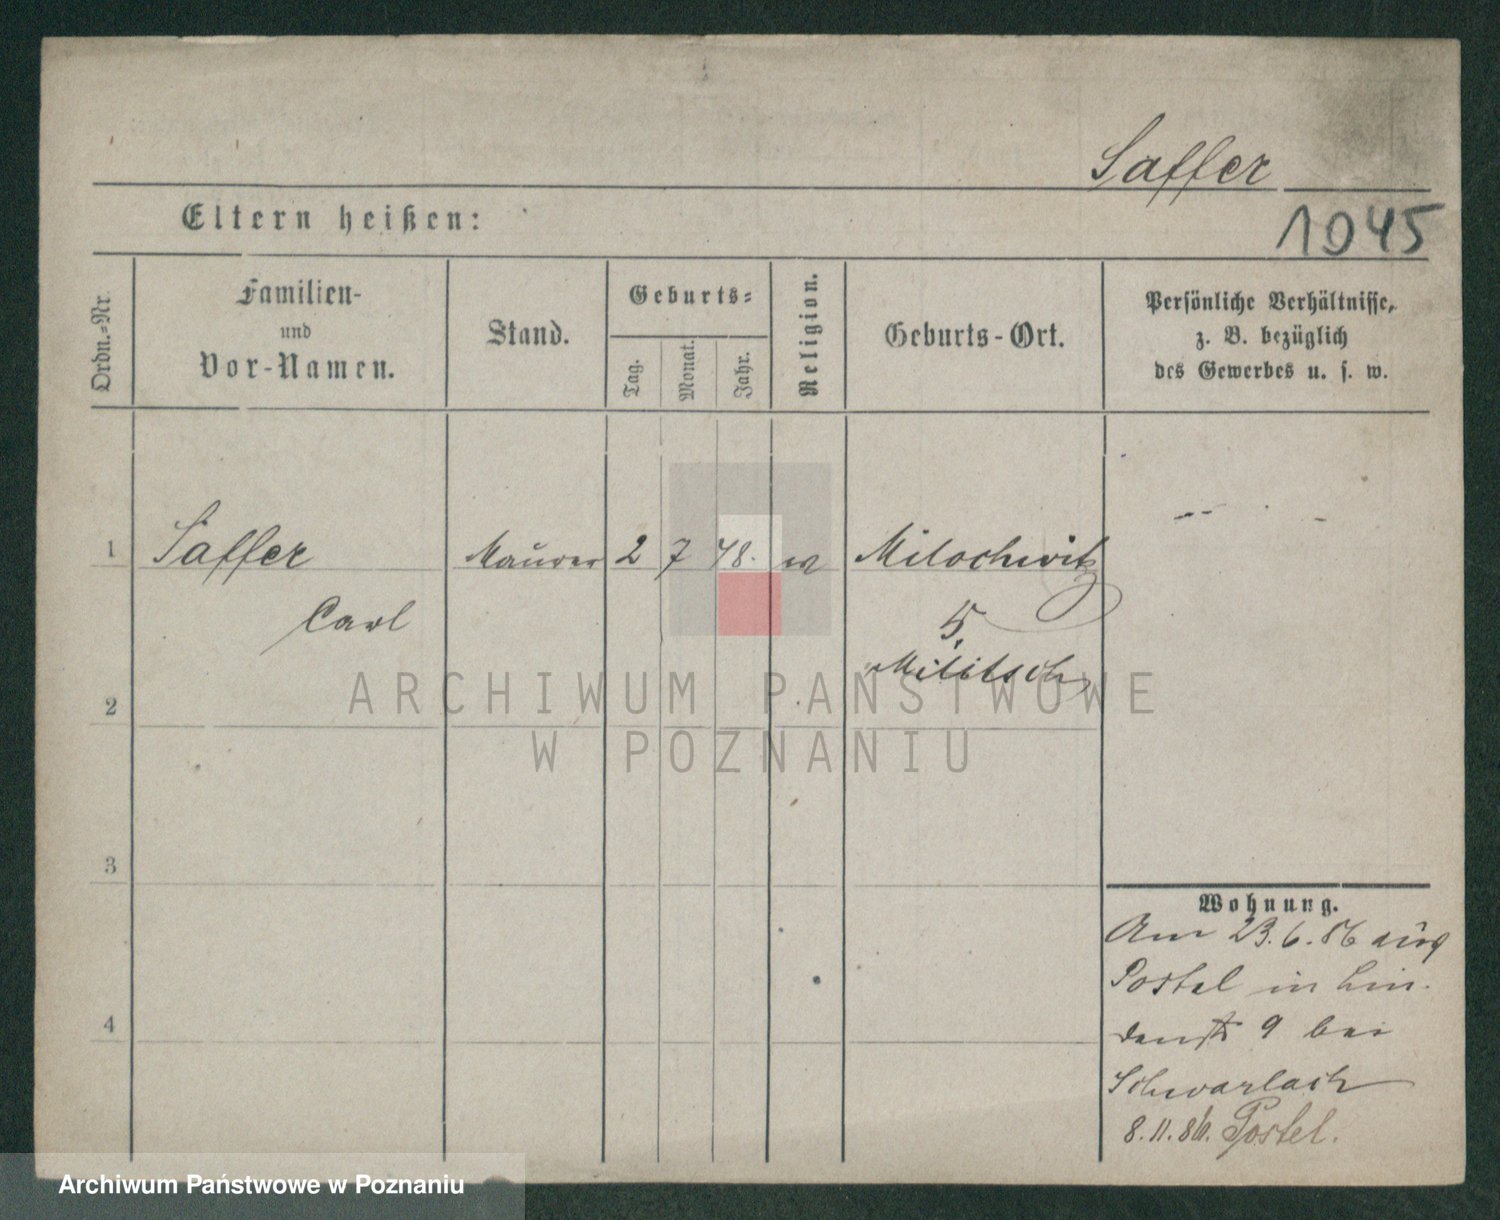 Saffer
1045
Eltern heißen:
Ordn.=Nr.
Familien-
und
Vor-Namen.
Stand.
Geburts=
Tag.
Monat.
Jahr.
Religion.
Geburts-Ort.
Persönliche Verhältnisse,
z. B. bezüglich
des Gewerbes u. s. w.
1 Saffer Maurer 2 7 48. Milochwitz
Carl
Militsch
2
3
4
Wohnung.
Am 23.6.86 aus
Postel in Lin-
denstr 9 bei
Schwarlach
8.11.86. Postel.
ARCHIWUM PAŃSTWOWE
W POZNANIU
Archiwum Państwowe w Poznaniu